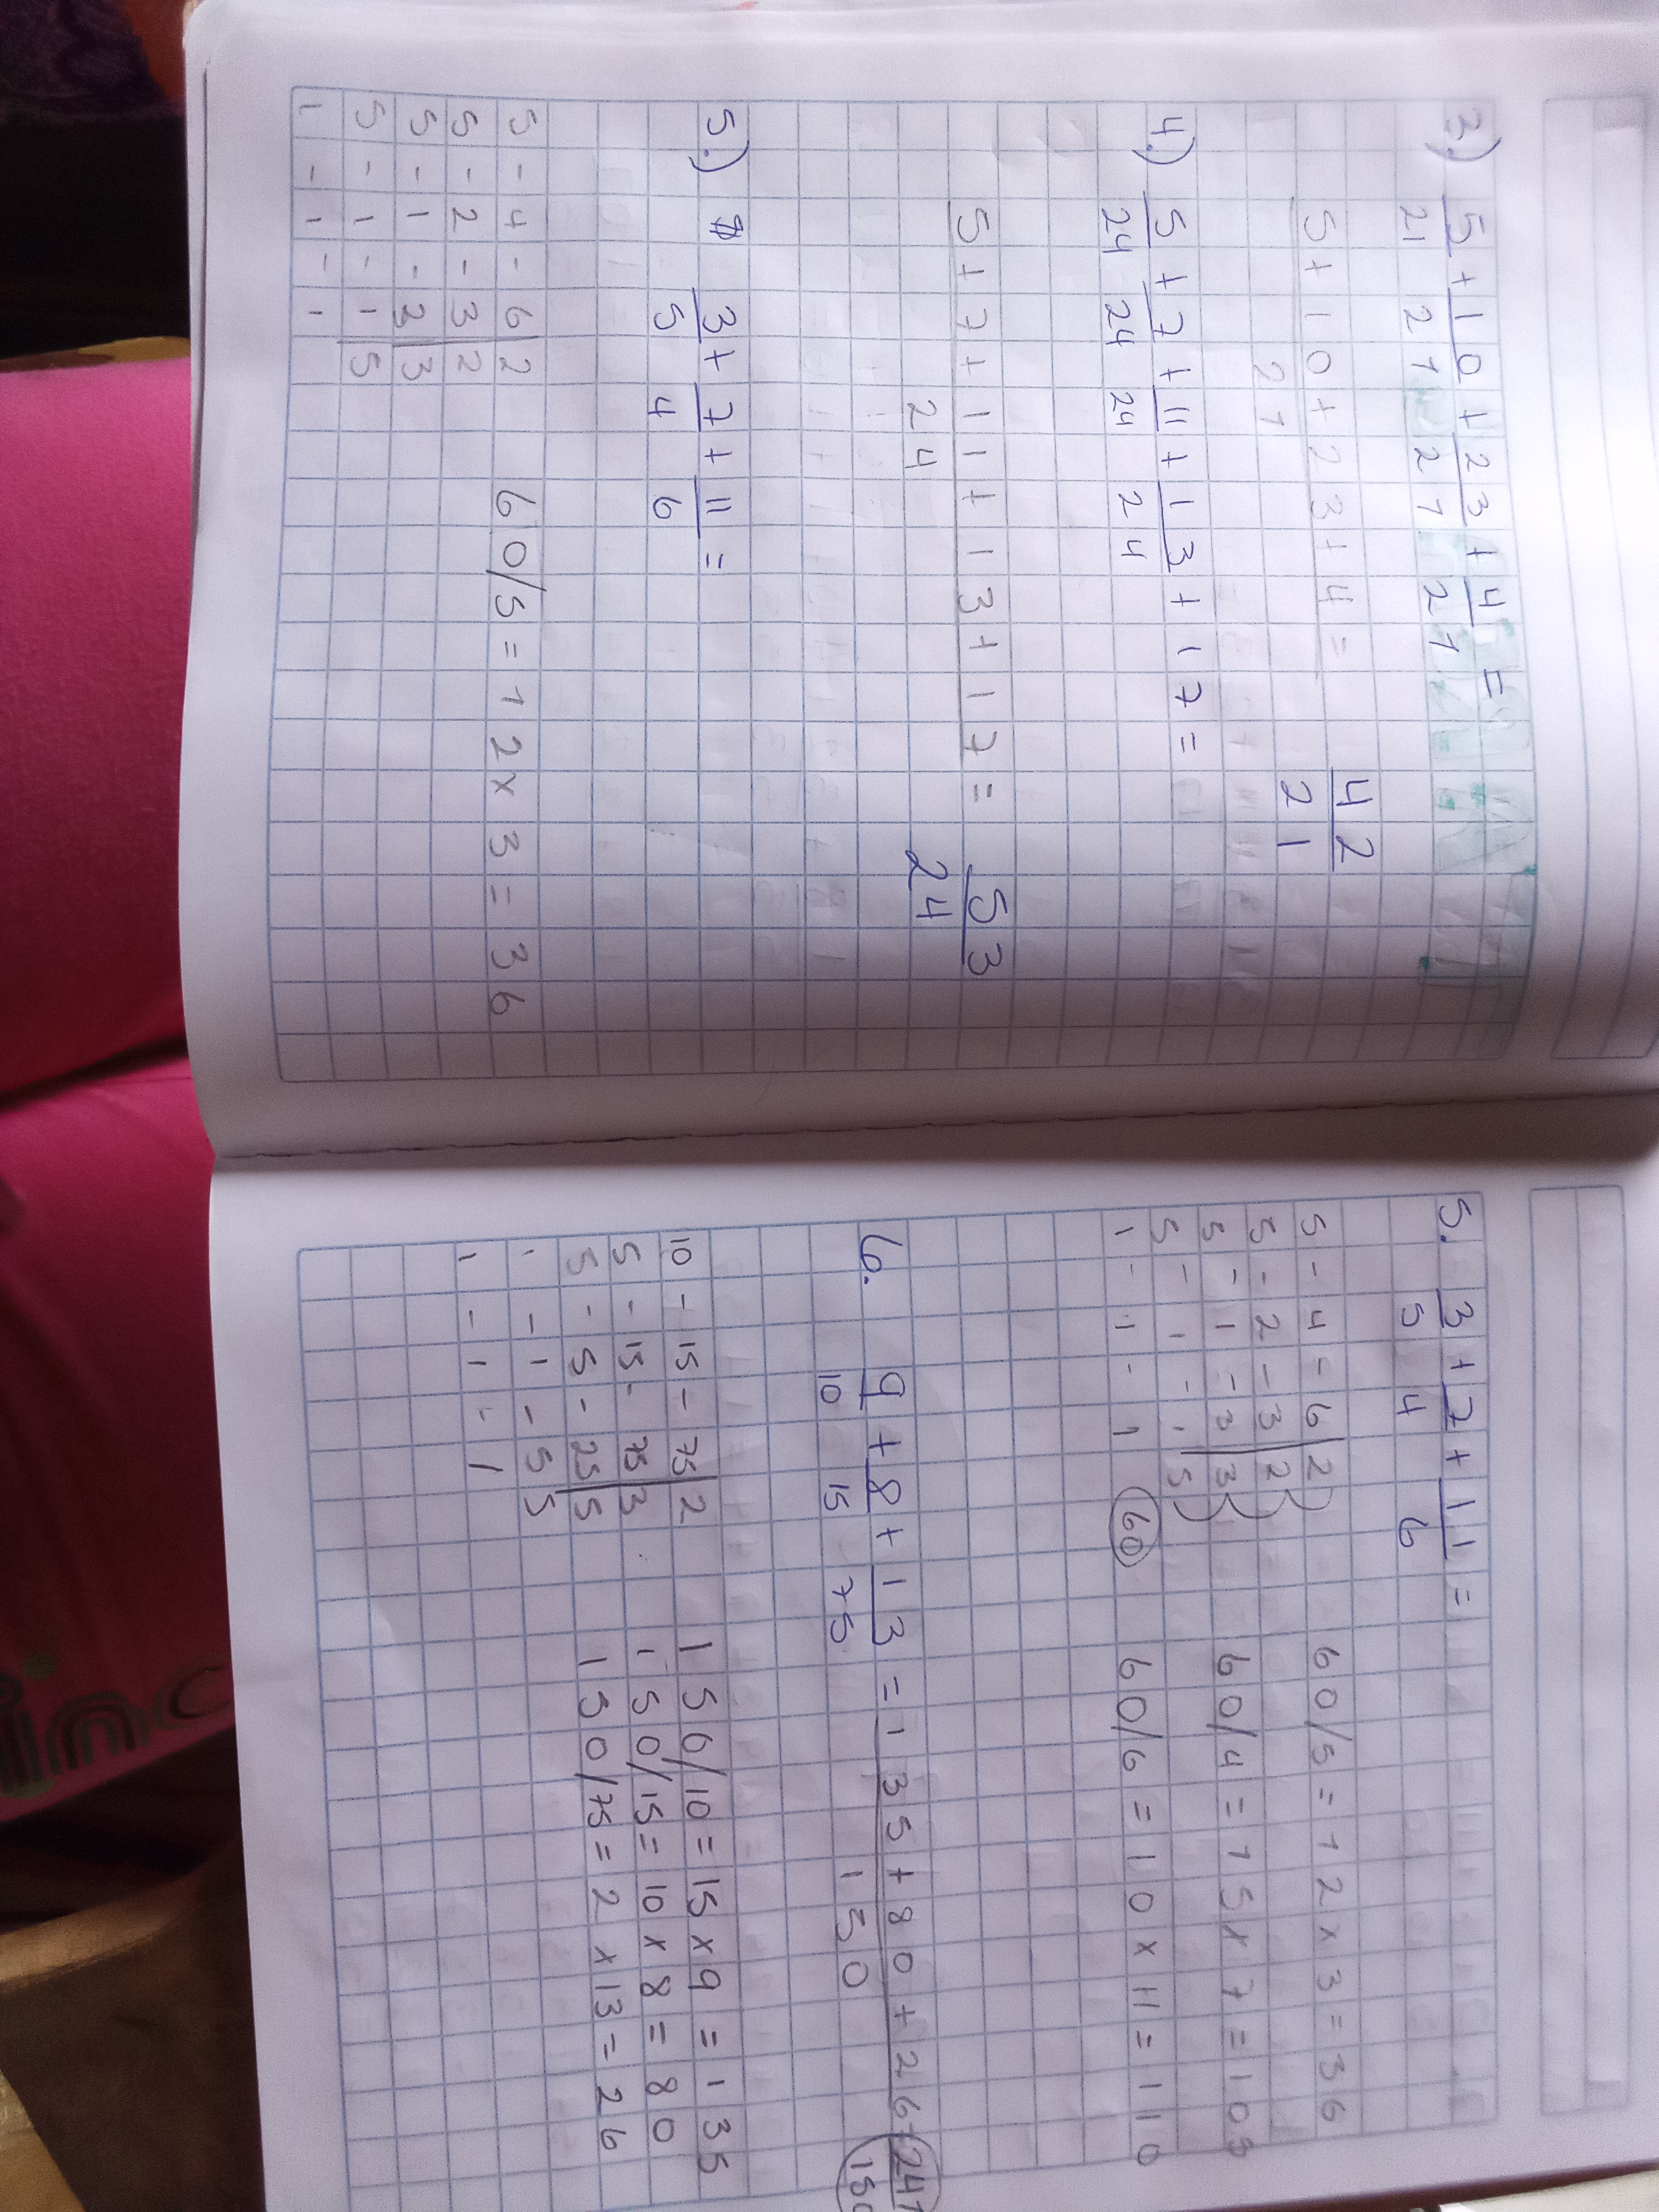 3.) 5/21 + 10/21 + 23/21 + 4/21 =
5+10+23+4 = 42
21 21
4.) 5/24 + 7/24 + 11/24 + 13/24 + 17 =
5+7+11+13+17 = 53
24 24
5.) 3/5 + 7/4 + 11/6 =
5 - 4 - 6 | 2 60/5 = 12 x 3 = 36
5 - 2 - 3 | 2
5 - 1 - 3 | 3
5 - 1 - 1 | 5
1 - 1 - 1
5. 3/5 + 7/4 + 11/6 =
5 - 4 - 6 | 2 60/5 = 12 x 3 = 36
5 - 2 - 3 | 2
5 - 1 - 3 | 3 60/4 = 15 x 7 = 105
5 - 1 - 1 | 5
1 - 1 - 1 60 60/6 = 10 x 11 = 110
6. 9/10 + 8/15 + 13/75 = 135+80+26 = 241
150
10 - 15 - 75 | 2 150/10 = 15 x 9 = 135
5 - 15 - 75 | 3 150/15 = 10 x 8 = 80
5 - 5 - 25 | 5 150/75 = 2 x 13 = 26
1 - 1 - 5 5
1 - 1 - 1
inc